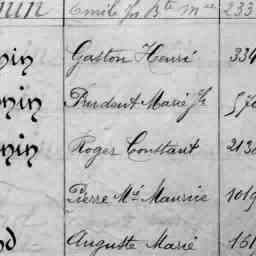 Emile Jh Bte Mie 233
nin Gaston Henri 334
nin Prudent Marie Jh 570
nin Roger Constant 213
Pierre Me Maurice 1019
nd Auguste Marie 161